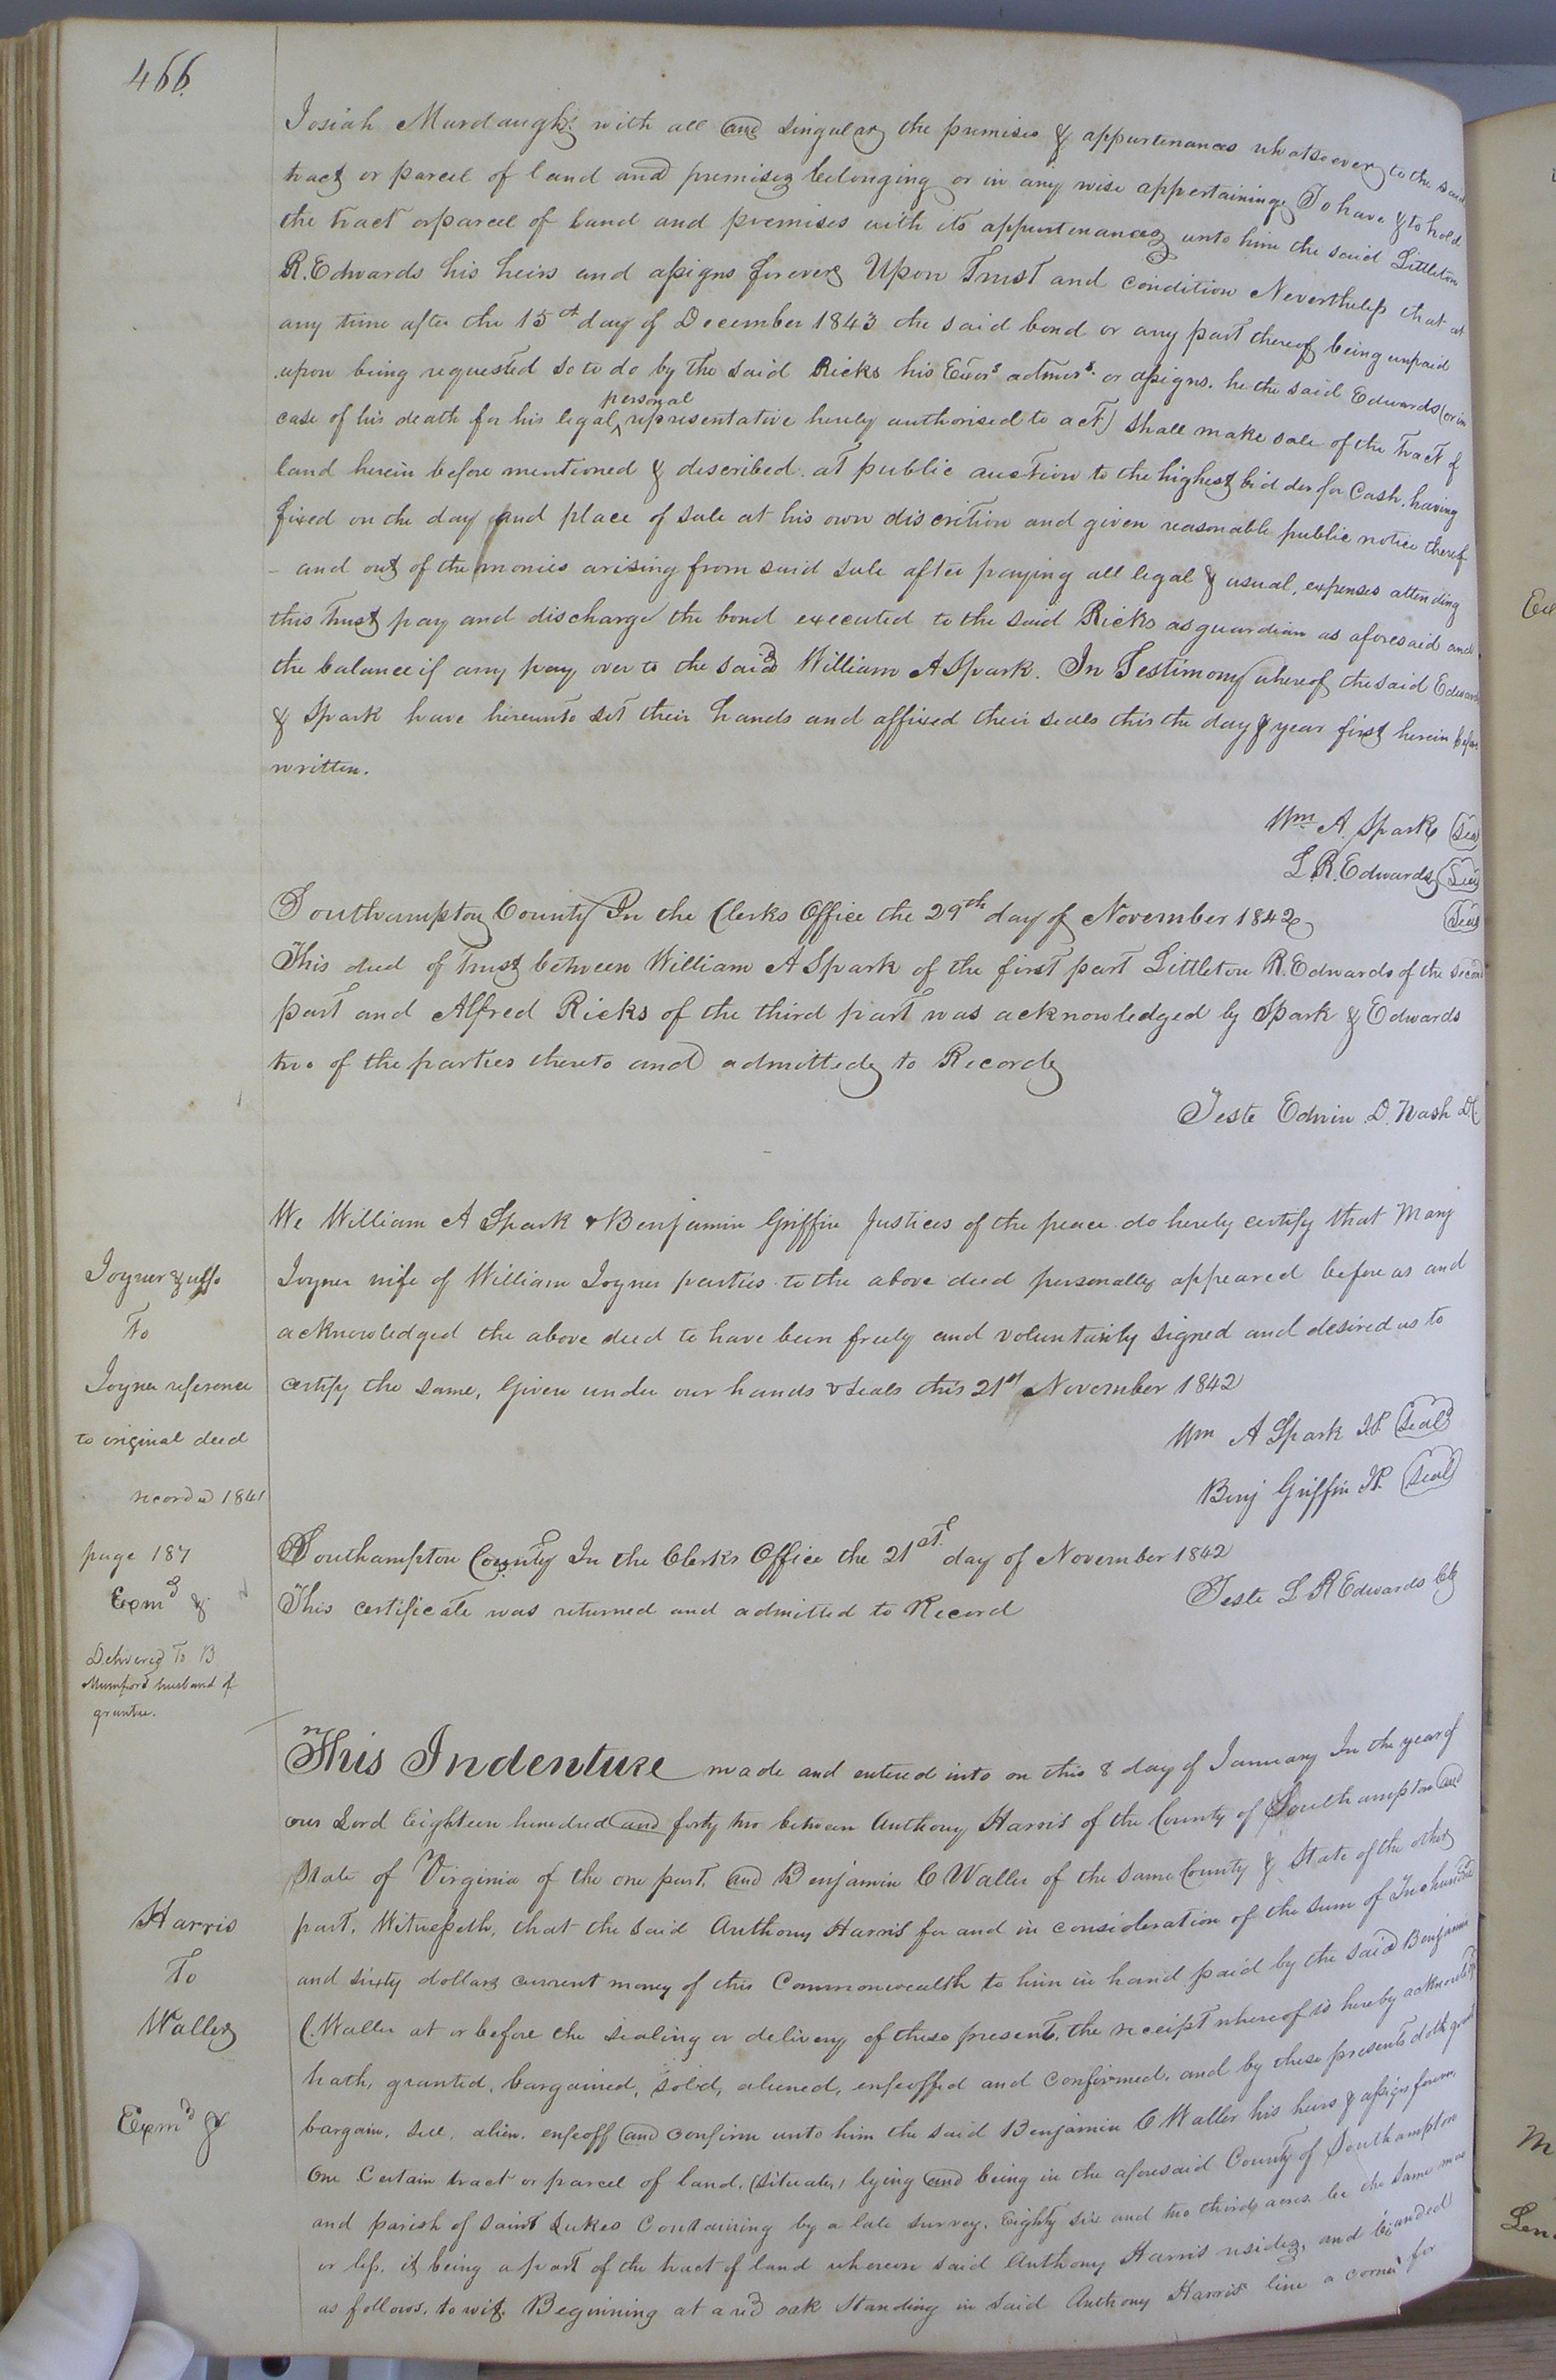 466.
Josiah Murdaugh, with all and singular the premises & appurtenances whatsoever to the said
tract or parcel of land and premises belonging or in any wise appertaining. To have & to hold
the tract or parcel of land and premises with its appurtenances unto him the said Littleton
R. Edwards his heirs and assigns forever Upon Trust and condition Nevertheless that at
any time after the 15th day of December 1843 the said bond or any part thereof being unpaid
upon being requested so to do by the said Ricks his Exors admrs. or assigns. he the said Edwards (or in
case of his death for his legal personal representative hereby authorised to act) shall make sale of the tract of
land herein before mentioned & described at public auction to the highest bidder for Cash, having
fixed on the day and place of sale at his own discrition and given reasonable public notice thereof
- and out of the monies arising from said sale after paying all legal & usual, expenses attending
this trust pay and discharge the bond executed to the said Ricks as guardian as aforesaid and
the balance if any pay over to the said William A Spark. In Testimony whereof the said Edwards
& Spark have hereunto set their hands and affixed their seals this the day & year first herein before
written.
Wm A. Spark Seal
L. R. Edwards Seal
Seal
Southampton County In the Clerks Office the 29th day of November 1842
This deed of trust between William A Spark of the first part Littleton R. Edwards of the second
part and Alfred Ricks of the third part was acknowledged by Spark & Edwards
two of the parties thereto and admitted to Record
Teste Edwin D. Nash DC
We William A Spark & Benjamin Griffin Justices of the peace do hereby certify that Mary
Joyner wife of William Joyner parties to the above deed personally appeared before us and
acknowledged the above deed to have been freely and voluntarily signed and desired us to
certify the same, Given under our hands & seals this 21st November 1842
Wm A Spark J.P. Seal
Benj Griffin J.P. Seal
Joyner & uffo
To
Joyner reference
to original deed
recorded 1841
page 187
Exmd &
Delivered To B
Mumford husband of
grantee.
Southampton County In the Clerks Office the 21st day of November 1842
This certificate was returned and admitted to Record
Teste L R Edwards Clk
This Indenture made and entered into on this 8 day of January In the year of
our Lord Eighteen hundred and forty two between Anthony Harris of the County of Southampton and
State of Virginia of the one part, and Benjamin C Waller of the same County & State of the other
part. Witnesseth, that the said Anthony Harris for and in consideration of the sum of Two hundred
and sixty dollars current money of this Commonwealth to him in hand paid by the said Benjamin
C. Waller at or before the sealing or delivery of these presents, the receipt whereof is hereby acknowledged
hath, granted, bargained, sold, aliened, enfeoffed and confirmed, and by these presents doth grant
bargain, sell, alien, enfeoff and confirm unto him the said Benjamin C Waller his heirs & assigns forever,
One Certain tract or parcel of land, (situate,) lying and being in the aforesaid County of Southampton
and parish of Saint Lukes Containing by a late survey, Eighty six and two thirds acres be the same more
or less, it being a part of the tract of land whereon said Anthony Harris resides, and bounded
as follows, to wit. Beginning at a red oak standing in said Anthony Harris' line a corner for
Harris
To
Waller
Exmd &